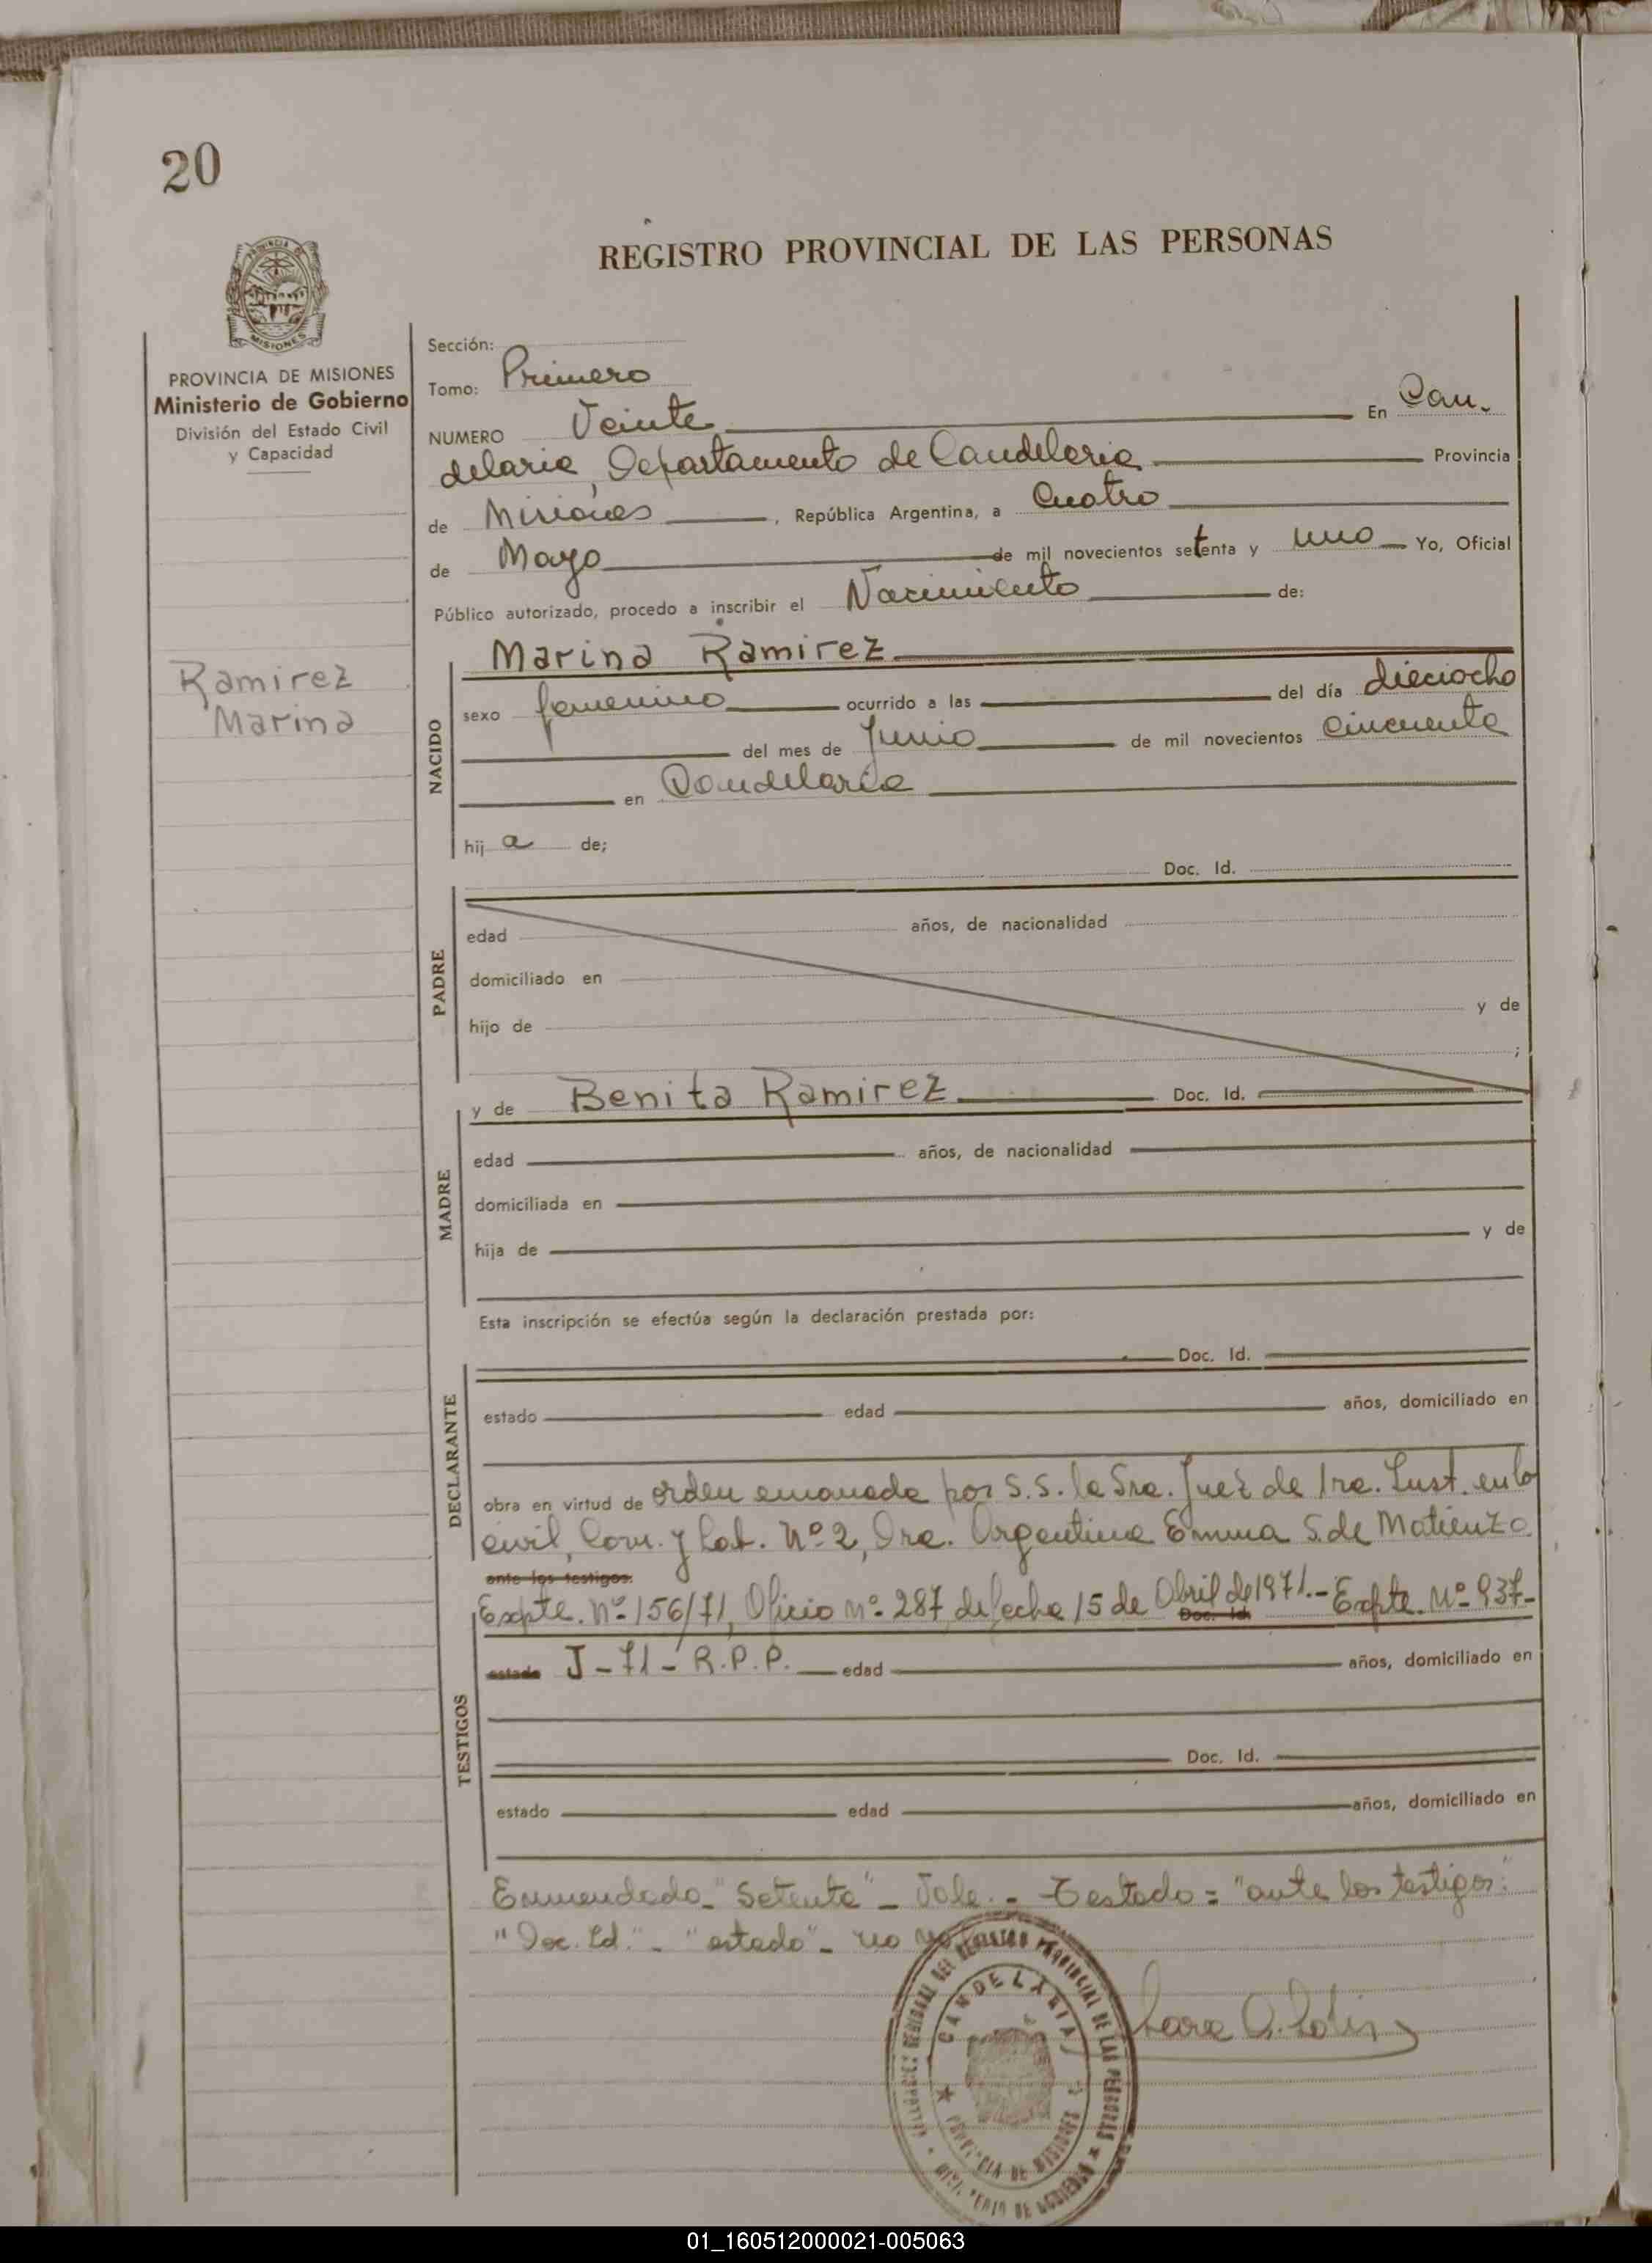 20
REGISTRO PROVINCIAL DE LAS PERSONAS
PROVINCIA DE MISIONES
Ministerio de Gobierno
División del Estado Civil
y Capacidad
Ramirez
Marina
Sección:
Tomo: Primero
NUMERO Veinte En Can-
delaria, Departamento de Candelaria Provincia
de Misiones, República Argentina, a Cuatro
de Mayo de mil novecientos setenta y uno Yo, Oficial
Público autorizado, procedo a inscribir el Nacimiento de:
NACIDO
Marina Ramirez
sexo femenino ocurrido a las del día dieciocho
del mes de Junio de mil novecientos Cincuenta
en Candelaria
hij a de;
PADRE
Doc. Id.
edad años, de nacionalidad
domiciliado en
hijo de y de
;
MADRE
y de Benita Ramirez Doc. Id.
edad años, de nacionalidad
domiciliada en
hija de y de
Esta inscripción se efectúa según la declaración prestada por:
DECLARANTE
Doc. Id.
estado edad años, domiciliado en
obra en virtud de orden emanada por S.S. la Sra. Juez de 1ra. Inst. en lo
civil, Com. y Lab. Nº 2, Dra. Argentina Emma S. de Matienzo
ante los testigos:
Expte. Nº 156/71, Oficio nº 287 de fecha 15 de Abril de 1971.- Expte. Nº 937-
Doc. Id.
TESTIGOS
estado J-71-R.P.P. edad años, domiciliado en
Doc. Id.
estado edad años, domiciliado en
Enmendado "Setenta" - Vale. - Testado = "ante los testigos:"
"Doc. Id." - "estado" - no
CANDELARIA
REGISTRO PROVINCIAL DE LAS PERSONAS
PROVINCIA DE MISIONES
MINISTERIO DE GOBIERNO
01_160512000021-005063